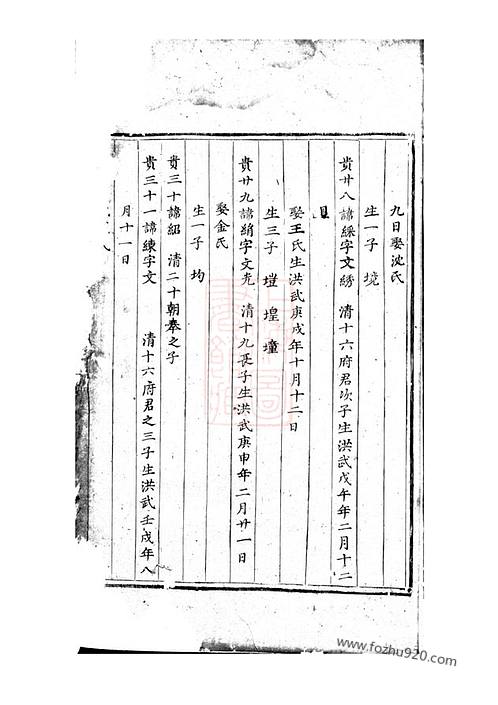 九日娶沈氏
生一子 境
貴廿八諱綵字文綉 清十六府君次子生洪武戊午年二月十二
日
娶王氏生洪武庚戌年十月十二日
生三子 塏 堭 墥
貴廿九諱綃字文克 清十九長子生洪武庚申年二月廿一日
娶金氏
生一子 均
貴三十諱紹 清二十朝奉之子
貴三十一諱練字文 清十六府君之三子生洪武壬戌年八
月十一日
www.fozhu920.com